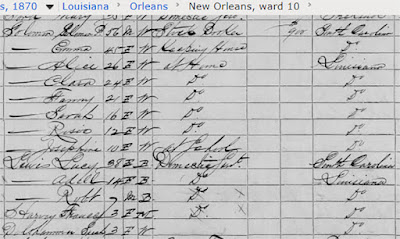 s, 1870 Louisiana Orleans New Orleans, ward 10
Mary
Solomon 56 M W Stock Broker 900 South Carolina
— Emma 45 F W Keeping House Do
— Alice 26 F W at Home Louisiana
— Clara 24 F W Do
— Fanny 21 F W Do
— Sarah 16 F W Do
— Rosa 12 F W Do
— Josephine 10 F W at School Do
Lewis Lucy 38 F B Domestic Servt. South Carolina
— Adell 14 F B Do Louisiana
— Robt 7 M B Do
Harvey Frances 3 F M Do Do
3 F W